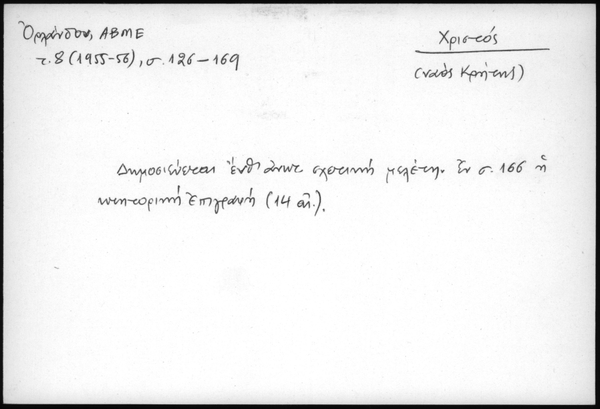 Ὀρλάνδου, ΑΒΜΕ
τ. 8 (1955-56), σ. 126-169
Χριστός
(ναὸς Κρήτης)
Δημοσιεύεται ἔνθ' ἀνωτ. σχετικὴ μελέτη. Ἐν σ. 166 ἡ
κτητορικὴ ἐπιγραφή (14 αἰ.).